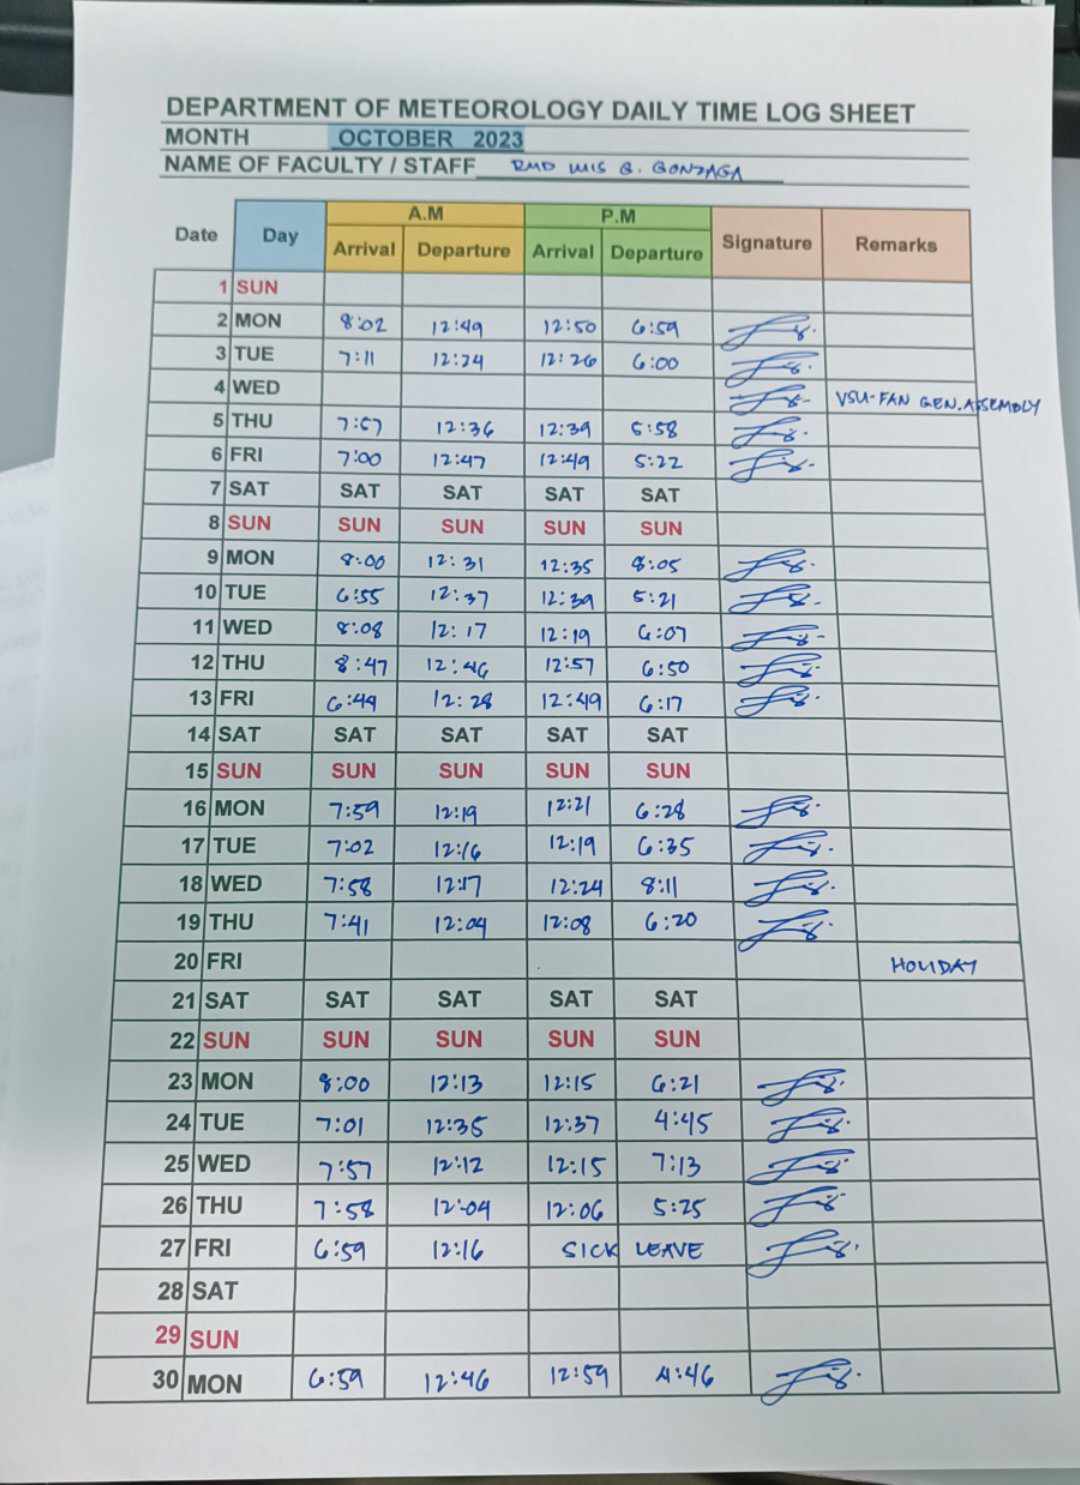 DEPARTMENT OF METEOROLOGY DAILY TIME LOG SHEET
MONTH OCTOBER 2023
NAME OF FACULTY / STAFF G. GONZAGA
A.M P.M
Date Day Arrival Departure Arrival Departure Signature Remarks
1 SUN
2 MON 8:02 12:49 12:50 6:59
3 TUE 7:11 12:24 12:26 6:00
4 WED VSU-FAN GEN. ASSEMBLY
5 THU 7:57 12:36 12:39 5:58
6 FRI 7:00 12:47 12:49 5:22
7 SAT SAT SAT SAT SAT
8 SUN SUN SUN SUN SUN
9 MON 8:00 12:31 12:35 8:05
10 TUE 6:55 12:37 12:39 5:21
11 WED 8:08 12:17 12:19 6:07
12 THU 8:47 12:46 12:57 6:50
13 FRI 6:49 12:28 12:49 6:17
14 SAT SAT SAT SAT SAT
15 SUN SUN SUN SUN SUN
16 MON 7:59 12:19 12:21 6:28
17 TUE 7:02 12:16 12:19 6:35
18 WED 7:58 12:17 12:24 8:11
19 THU 7:41 12:04 12:08 6:20
20 FRI HOLIDAY
21 SAT SAT SAT SAT SAT
22 SUN SUN SUN SUN SUN
23 MON 8:00 12:13 12:15 6:21
24 TUE 7:01 12:35 12:37 4:45
25 WED 7:57 12:12 12:15 7:13
26 THU 7:58 12:04 12:06 5:25
27 FRI 6:59 12:16 SICK LEAVE
28 SAT
29 SUN
30 MON 6:59 12:46 12:59 4:46